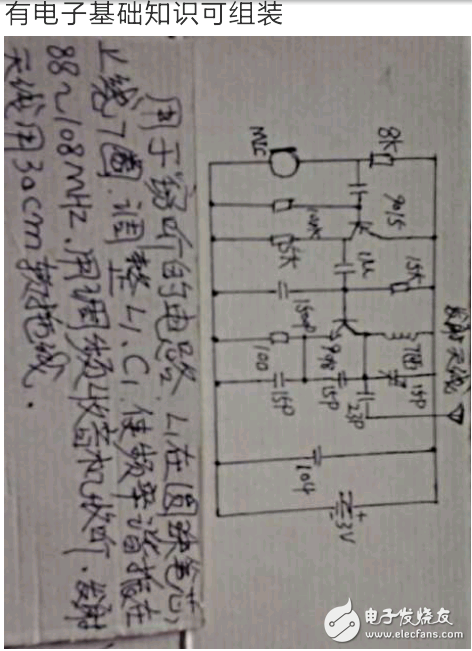 有电子基础知识可组装
用于窃听的电路. L₁在圆珠笔芯
上绕7圈.调整L₁.C₁.使频率谐振在
88～108MHz.用调频收音机收听.发射
天线用30cm软拖线.
MIC
8K
9015
100K
15K
1u
15K
150P
发射天线
9018
7圈
15P
100
15P
15P
23P
104
3V
+
电子发烧友
www.elecfans.com